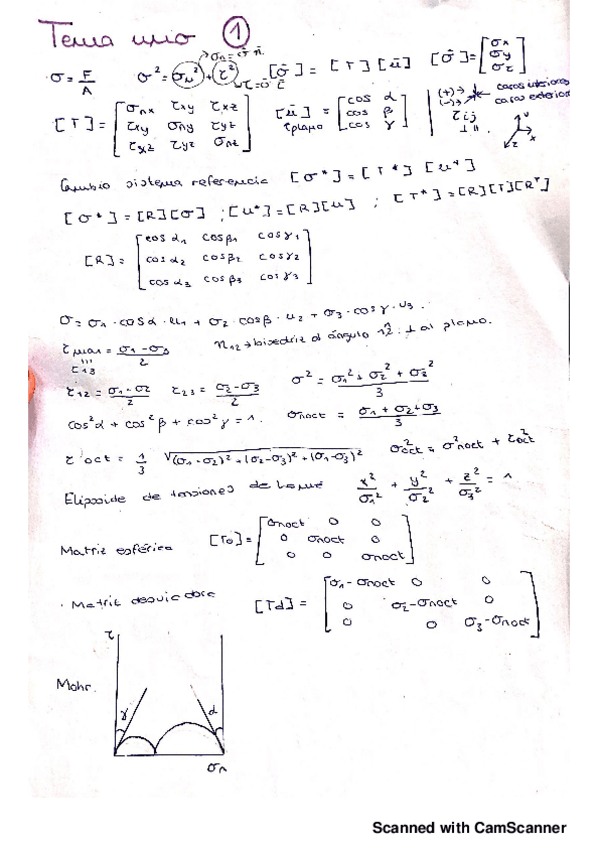 Tema uno 1
→ σn = σ̄ n̄.
σ = F/A   σ² = σn² + τ²   [σ̄] = [T][ū]   [σ̄] = [σx σy σz]
[T] = [σnx τxy τxz; τxy σny τyz; τxz τyz σnz]   [ū] = [cos α; cos β; cos γ]   (+) → caras interiores
plano   (-) → caras exteriores
τij
Cambio sistema referencia [σ*] = [T*] [u*]
[σ*] = [R][σ] ; [u*] = [R][u] ; [T*] = [R][T][Rᵀ]
[R] = [cos α1 cos β1 cos γ1; cos α2 cos β2 cos γ2; cos α3 cos β3 cos γ3]
σ = σ1 · cos α · u1 + σ2 · cos β · u2 + σ3 · cos γ · u3.
τmax = (σ1 - σ3)/2   n12 → bisectriz al ángulo 12 ⊥ al plano.
τ13
τ12 = (σ1 - σ2)/2   τ23 = (σ2 - σ3)/2   σ² = (σ1² + σ2² + σ3²)/3
cos²α + cos²β + cos²γ = 1.   σnoct = (σ1 + σ2 + σ3)/3
τoct = 1/3 √((σ1 - σ2)² + (σ2 - σ3)² + (σ1 - σ3)²)   σ²oct = σ²noct + τ²oct
Elipsoide de tensiones de Lamé   x²/σ1² + y²/σ2² + z²/σ3² = 1
Matriz esférica   [To] = [σnoct 0 0; 0 σnoct 0; 0 0 σnoct]
· Matriz desviadora   [Td] = [σ1 - σnoct 0 0; 0 σ2 - σnoct 0; 0 0 σ3 - σnoct]
τ
Mohr.
γ   α
σn
Scanned with CamScanner